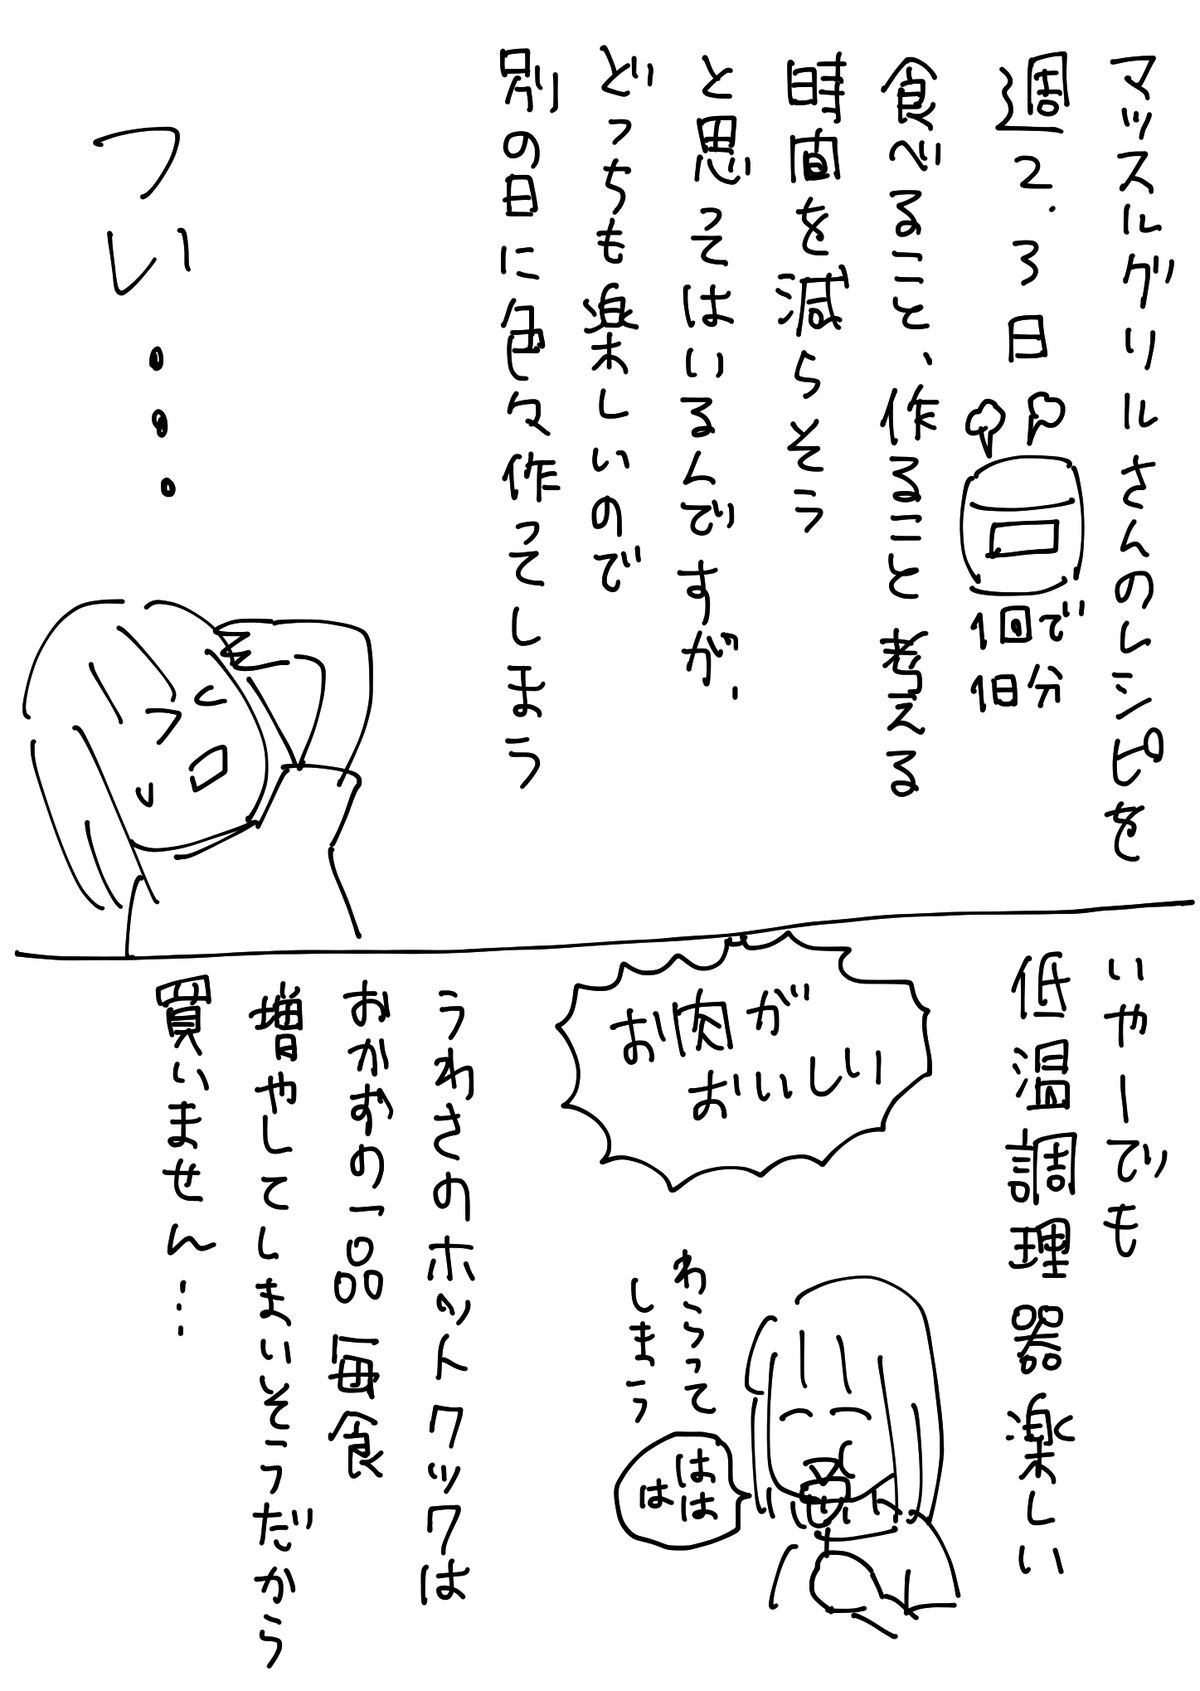 マッスルグリルさんのレシピを
週2.3日
1回で
1日分
食べること、作ること考える
時間を減らそう
と思ってはいるんですが、
どっちも楽しいので
別の日に色々作ってしまう
つい...
いやーでも
低温調理器楽しい
お肉が
おいしい
わらって
しまう
はは
は
うわさのホットクックは
おかずの一品毎食
増やしてしまいそうだから
買いません...